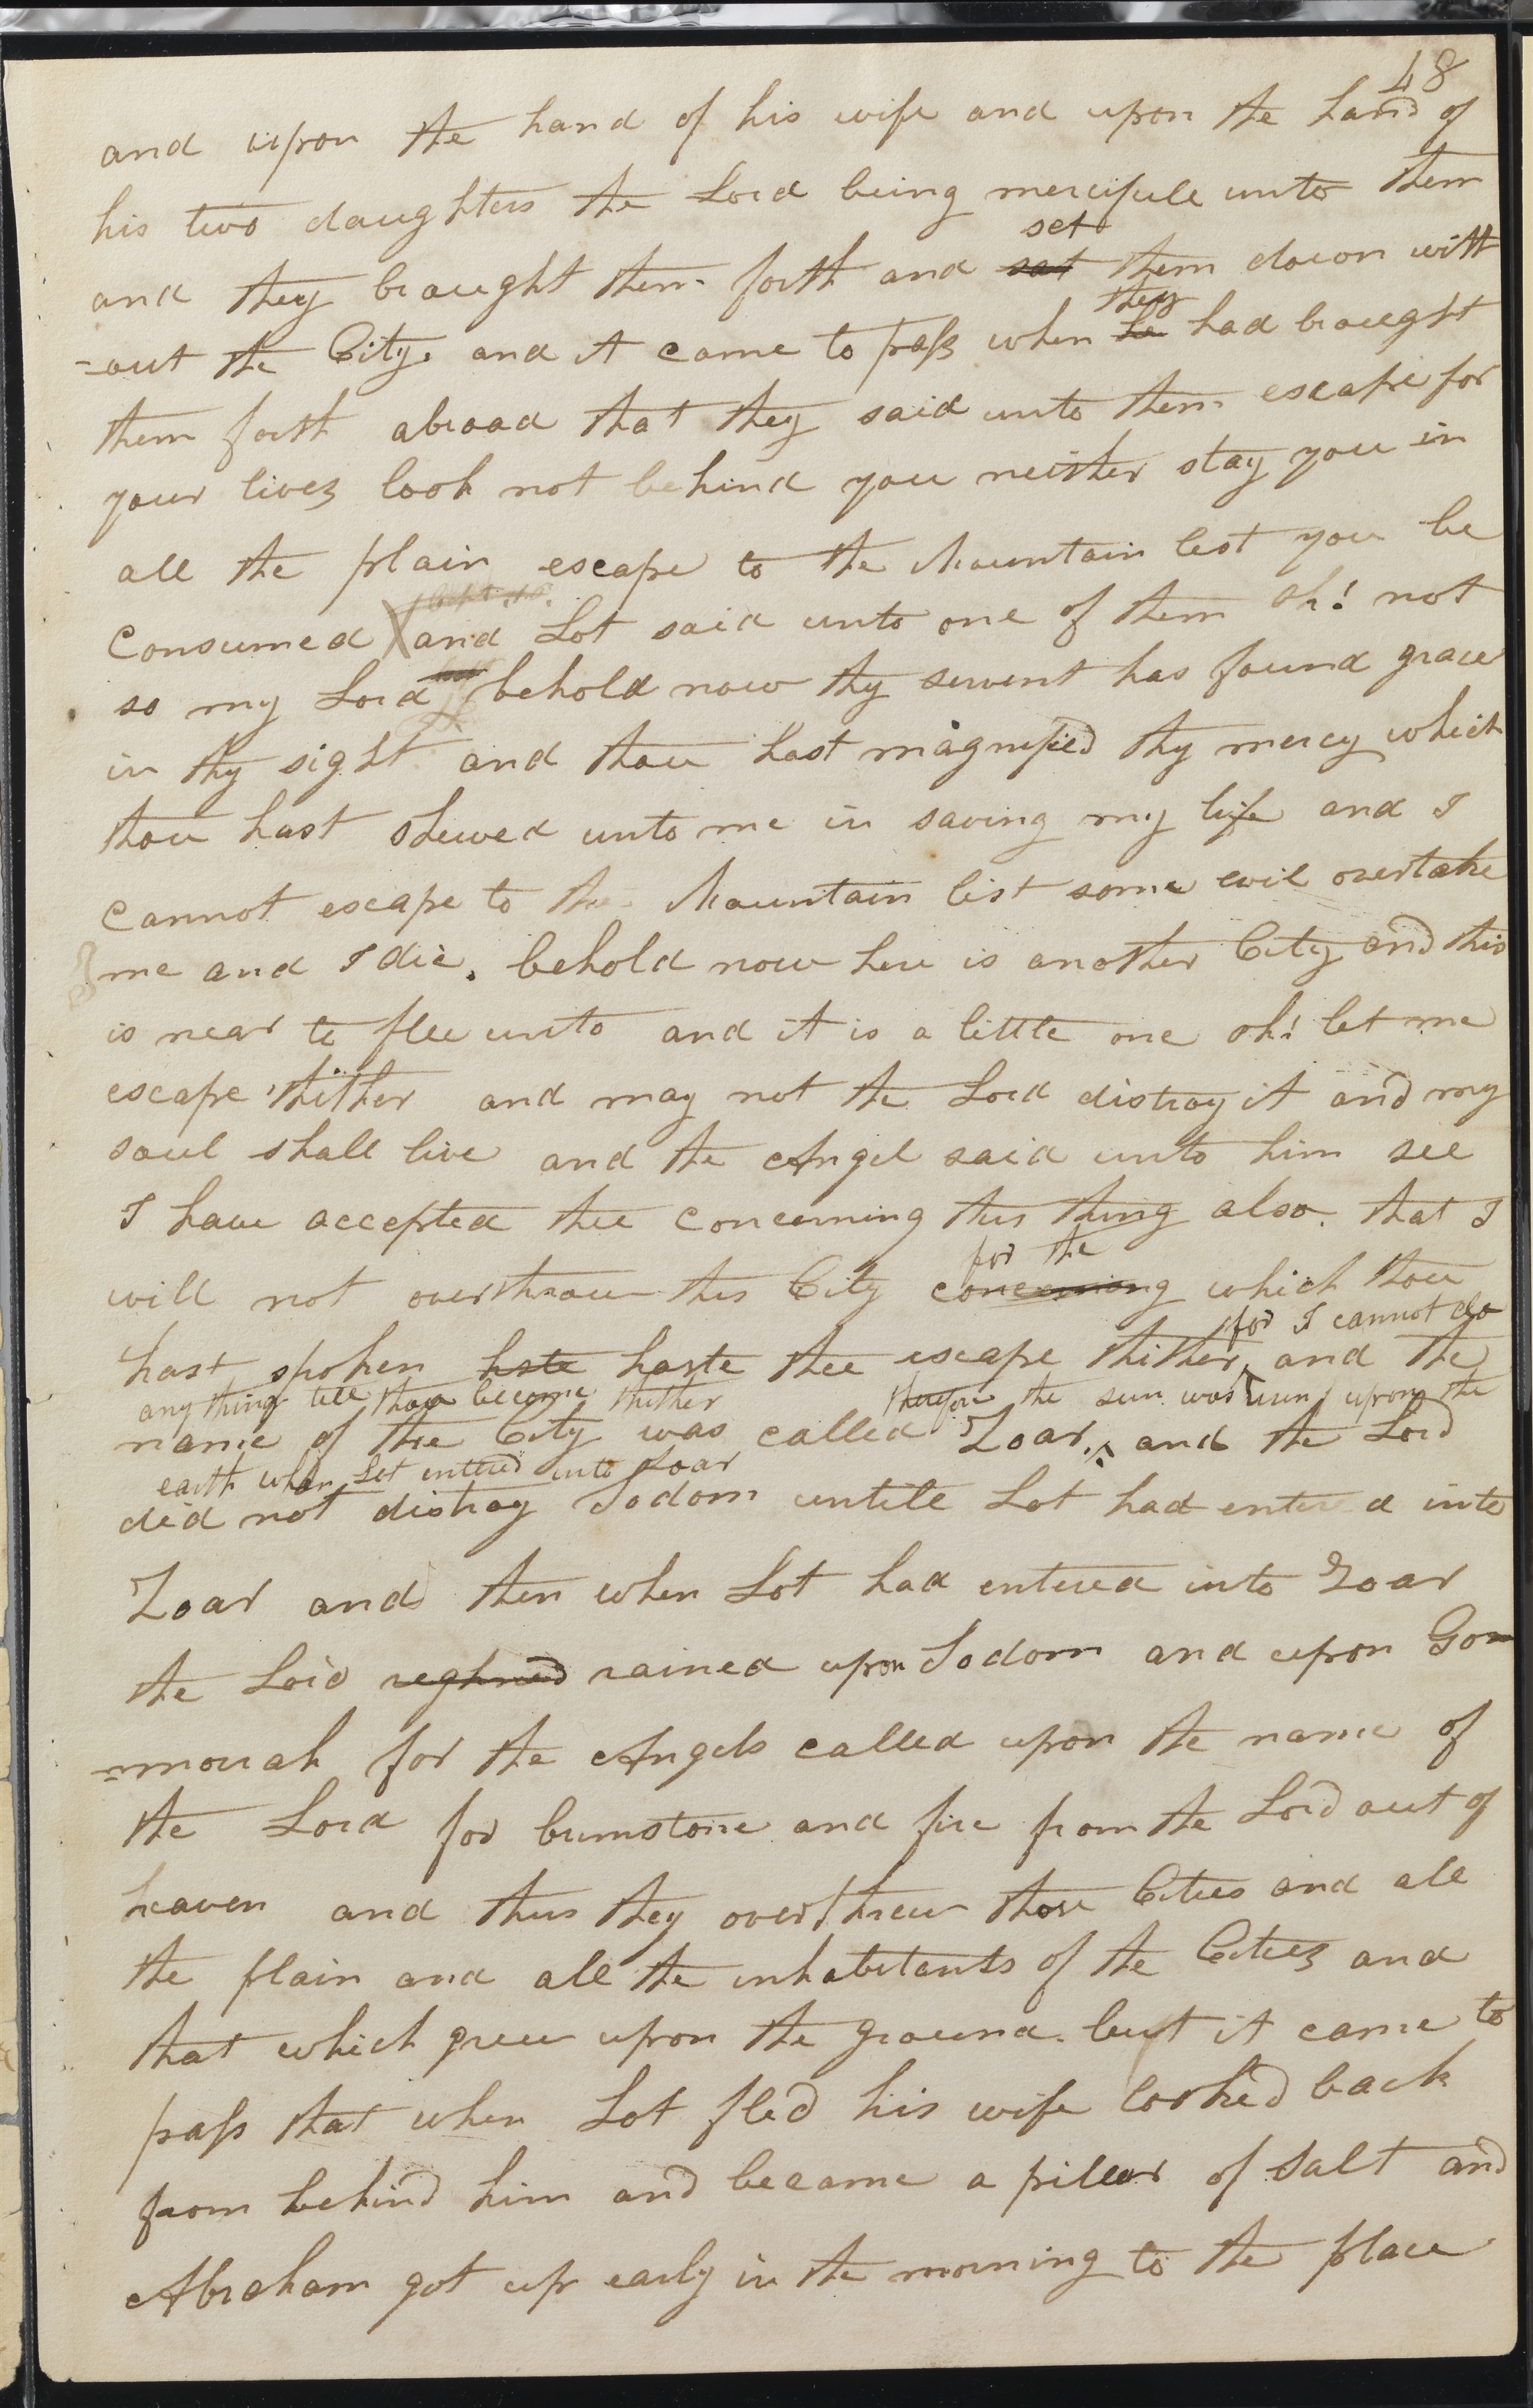 48
and upon the hand of his wife and upon the hand of
his two daughters the Lord being mercifull unto them
set
and they braught them forth and sat them down with
they
=out the City. and it came to pass when he had braught
them forth abroad that they said unto them escape for
your lives look not behind you neither stay you in
all the plain escape to the Mountain lest you be
consumed and Lot said unto one of them oh! not
so my Lord behold now thy servent has found grace
in thy sight and thou hast magnified thy mercy which
thou hast shewed unto me in saving my life and I
cannot escape to the Mountain list some evil overtake
me and I die. behold now here is another City and this
is near to flee unto and it is a little one oh! let me
escape thither and may not the Lord distroy it and my
soul shall live and the Angel said unto him see
I have accepted thee concerning this thing also. that I
for the
will not overthrow this City concerning which thou
for I cannot do
hast spoken hste haste thee escape thither, and the
any thing till thou become thither therefore the sun was risen upon the
name of the City was called Zoar, and the Lord
earth when Lot entered into Zoar
did not distroy Sodom untill Lot had entered into
Zoar and then when Lot had entered into Zoar
the Lord reghned rained upon Sodom and upon Gom
=morrah for the Angels called upon the name of
the Lord for brimstone and fire from the Lord out of
heaven and thus they overthrew those Cities and all
the plain and all the inhabitants of the Cities and
that which grew upon the ground. but it came to
pass that when Lot fled his wife looked back
from behind him and became a pillar of Salt and
Abraham got up early in the morning to the place